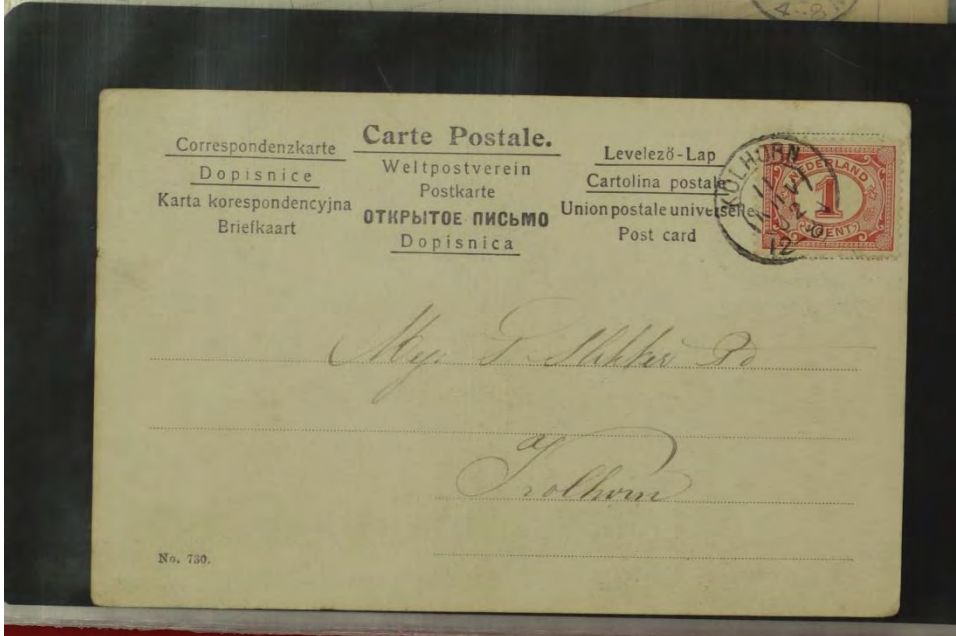 Carte Postale.
Correspondenzkarte
Dopisnice
Karta korespondencyjna
Briefkaart
Weltpostverein
Postkarte
ОТКРЫТОЕ ПИСЬМО
Dopisnica
Levelező-Lap
Cartolina postale
Union postale universelle
Post card
KOLHORN
12
NEDERLAND
1
CENT
Mej. P. Slikker Pd
Kolhorn
No. 730.